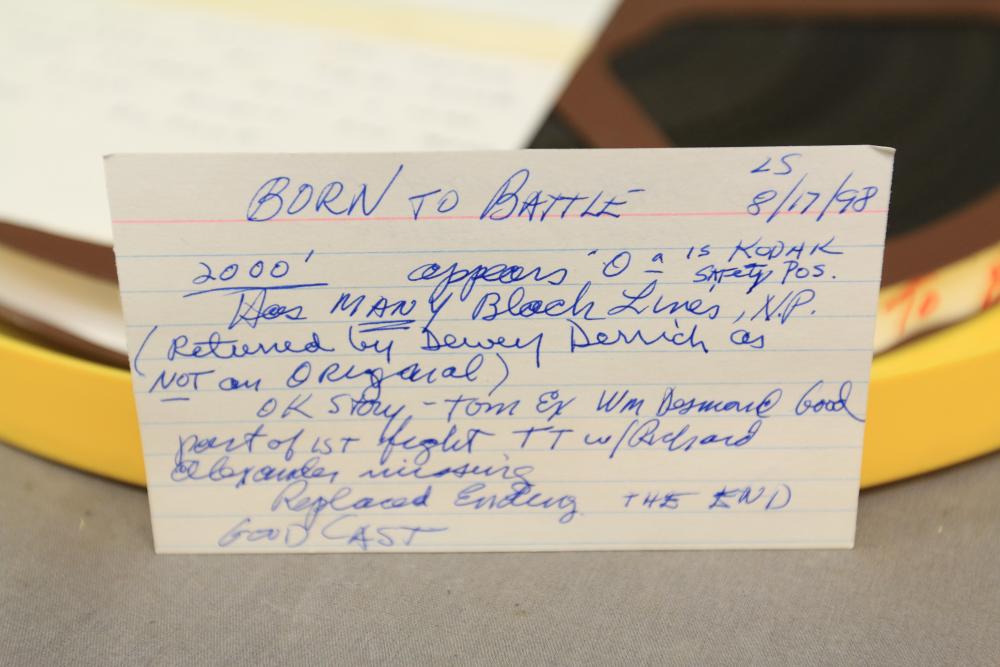 LS
BORN TO BATTLE 8/17/98
2000' appears "O" is KODAK SAfety POS.
Has MANY Black Lines, N.P.
(Returned by Dewey Derrick as
NOT an Original)
OK Story - Tom Ex Wm Desmond Good
part of 1ST fight TT w/Richard
Alexander missing
Replaced Ending THE END
GOOD CAST
To